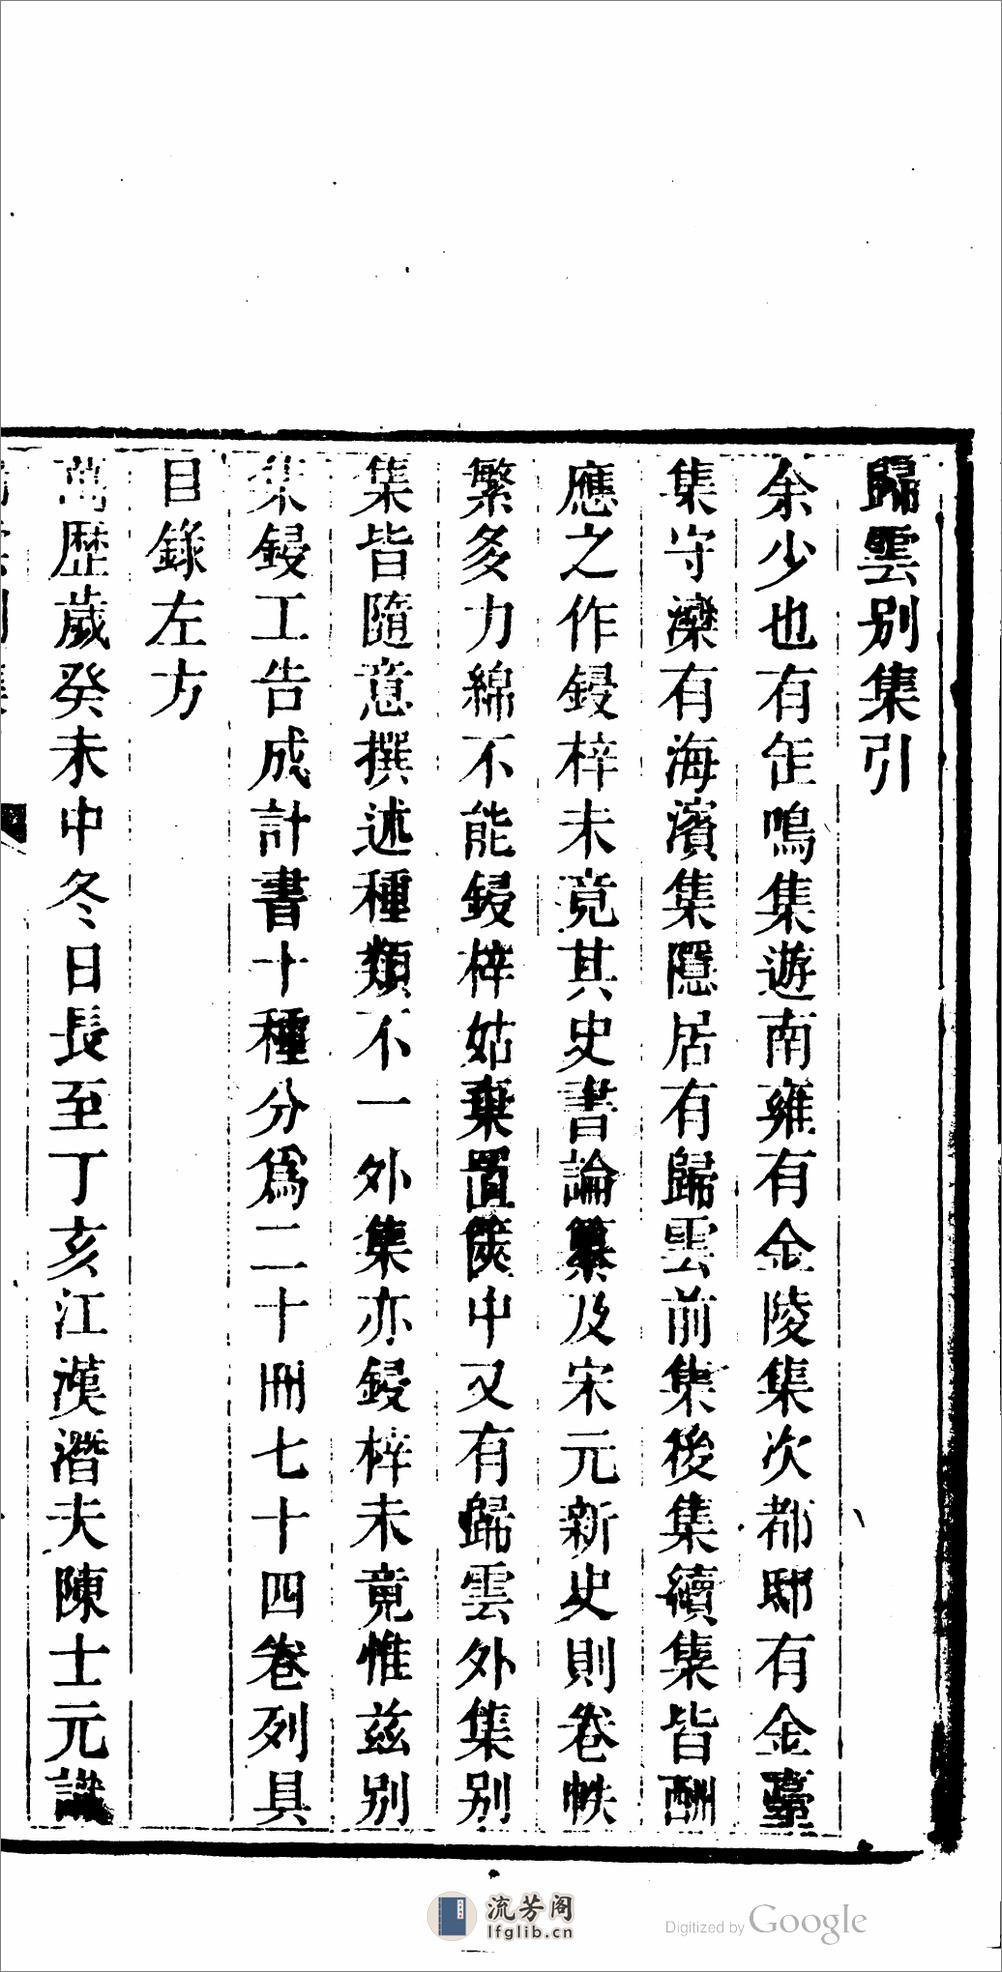 歸雲别集引
余少也有缶鳴集遊南雍有金陵集次都邸有金臺
集守灤有海濱集隱居有歸雲前集後集續集皆酬
應之作鋟梓未竟其史書論纂及宋元新史則卷帙
繁多力綿不能鋟梓姑棄置篋中又有歸雲外集别
集皆隨意撰述種類不一外集亦鋟梓未竟惟兹别
集鋟工告成計書十種分爲二十冊七十四卷列具
目錄左方
萬歷歲癸未中冬日長至丁亥江漢潛夫陳士元識
流芳阁
lfglib.cn
Digitized by Google